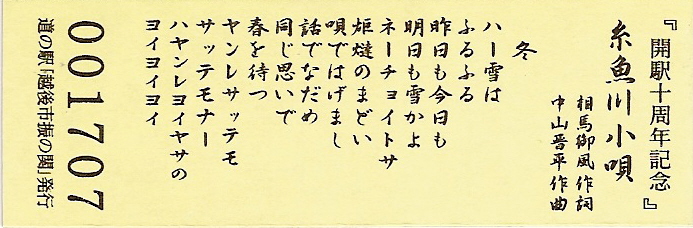 『開駅十周年記念』
糸魚川小唄
相馬御風作詞
中山晋平作曲
冬
ハー雪は
ふるふる
昨日も今日も
明日も雪かよ
ネーチョイトサ
炬燵のまどい
唄ではげまし
話でなだめ
同じ思いで
春を待つ
ヤンレサッテモ
サッテモナー
ハヤンレヨイヤサの
ヨイヨイヨイ
001707
道の駅「越後市振の関」発行